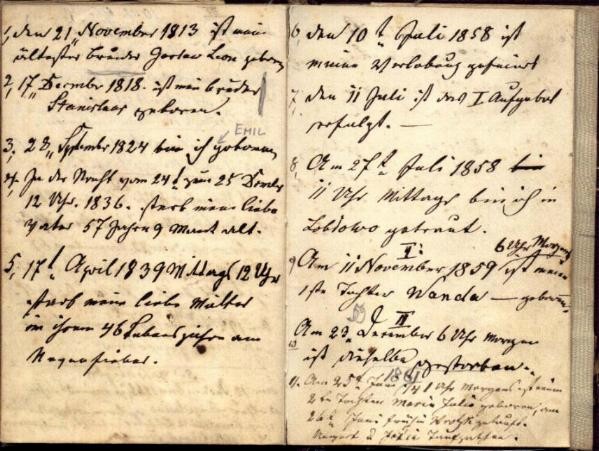 1, den 21 November 1813 ist mein
ältester Bruder Gustav Leon geboren
2, 17 December 1818. ist mein Bruder
Stanislaus geboren.
EMIL
3, 28, September 1824 bin ich geboren
4, In der Nacht vom 24t zum 25 December
12 Uhr. 1836. starb mein lieber
Vater 57 Jahre 9 Monat alt.
5, 17t April 1839 Mittags 12 Uhr
starb meine liebe Mutter
in ihrem 46 Lebensjahre am
Nervenfieber.
6, den 10t Juli 1858 ist
meine Verlobung gefeiert
7, den 11 Juli ist das I Aufgebot
erfolgt. —
8, Am 27t Juli 1858
11 Uhr Mittags bin ich in
Lobsowo getraut.
I. 6 Uhr Morgens
9, Am 11 November 1859 ist meine
1ste Tochter Wanda — geboren.
59 II
10 Am 23 December 6 Uhr Morgen
ist dieselbe gestorben.
1861
11. Am 25t Juni 1 Uhr Morgens ist meine
2te Tochter Maria Julia geboren, am
26t Juni getauft.
Taufpathen.